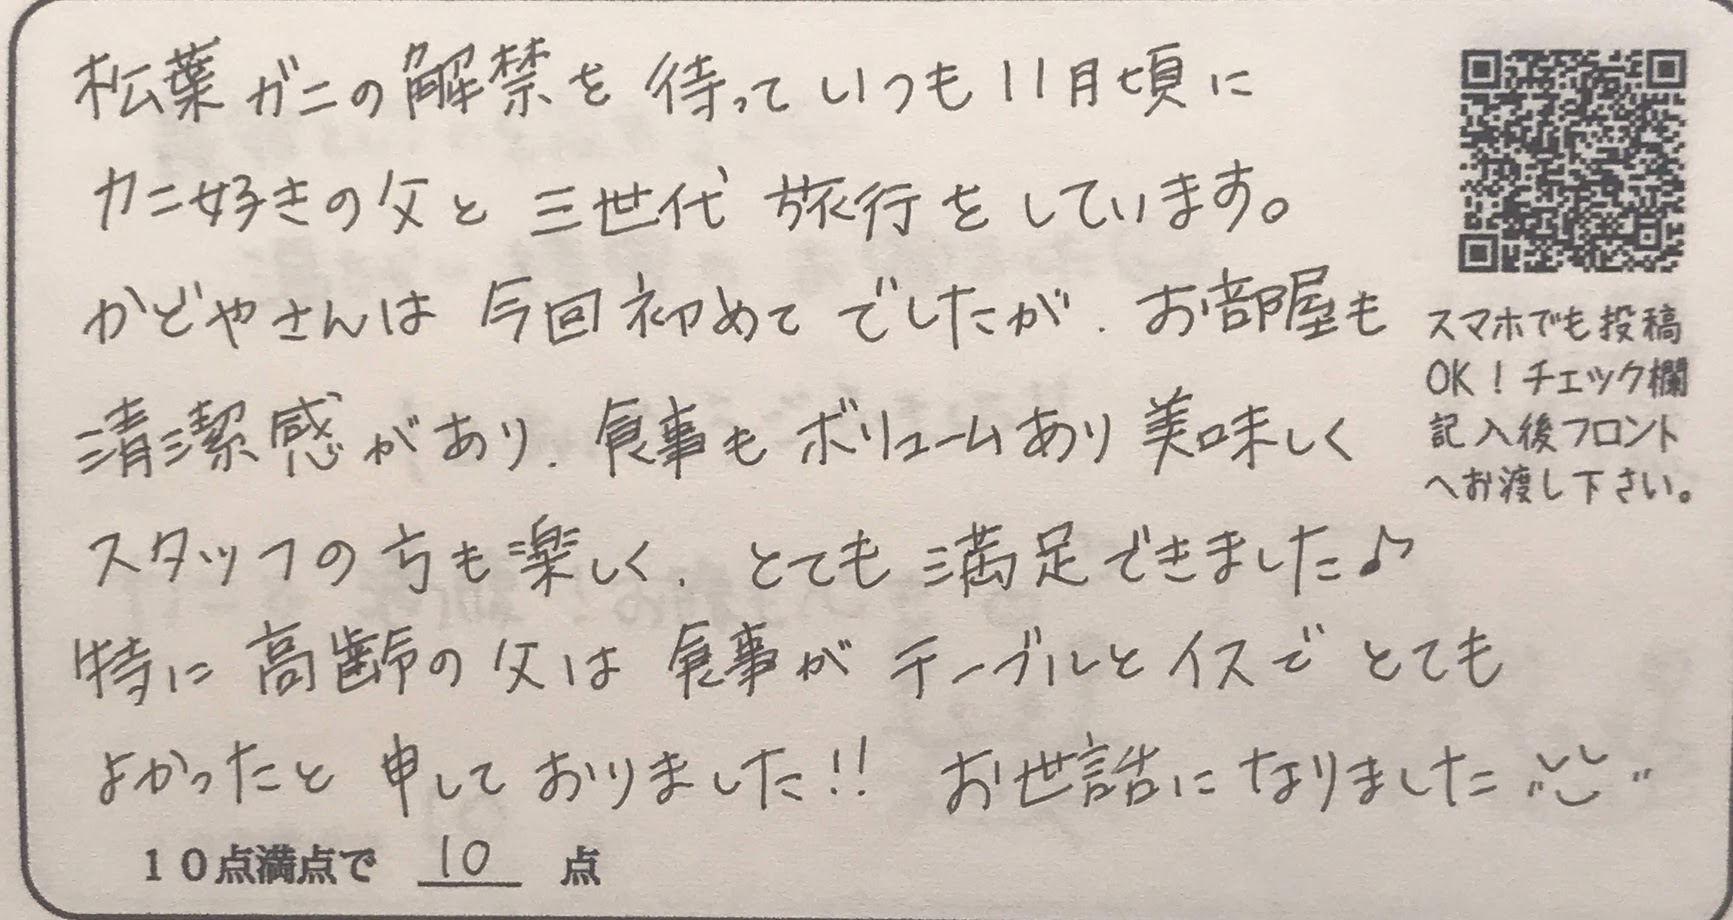 松葉ガニの解禁を待っていつも11月頃に
カニ好きの父と三世代旅行をしています。
かどやさんは今回初めてでしたが、お部屋も
清潔感があり、食事もボリュームあり美味しく
スタッフの方も楽しく、とても満足できました♪
特に高齢の父は食事がテーブルとイスでとても
よかったと申しておりました!! お世話になりました
10点満点で 10 点
スマホでも投稿
OK！チェック欄
記入後フロント
へお渡し下さい。